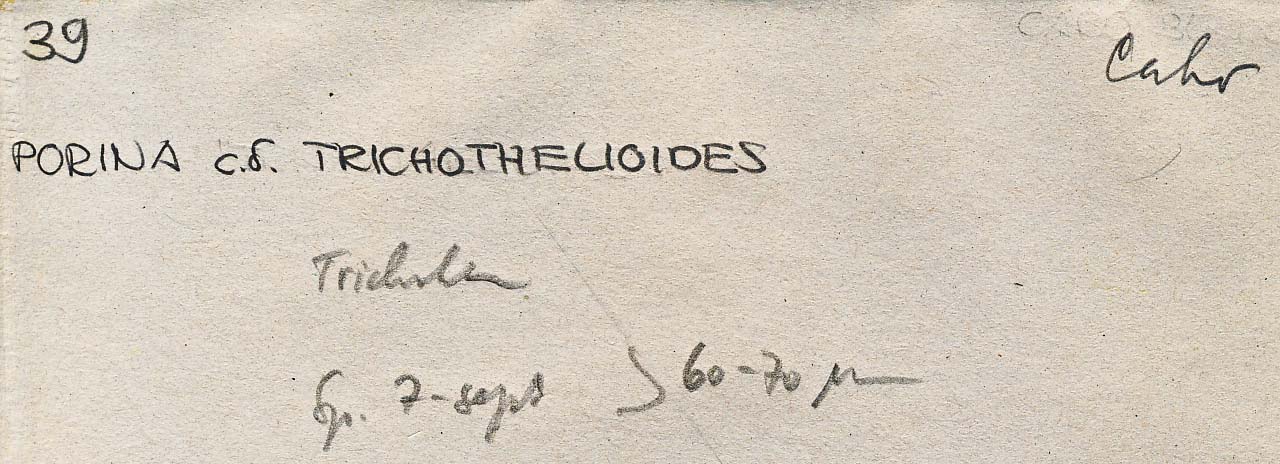 39
Cabo
PORINA c.f. TRICHOTHELIOIDES
Sp. 7-sept
60-70 µm